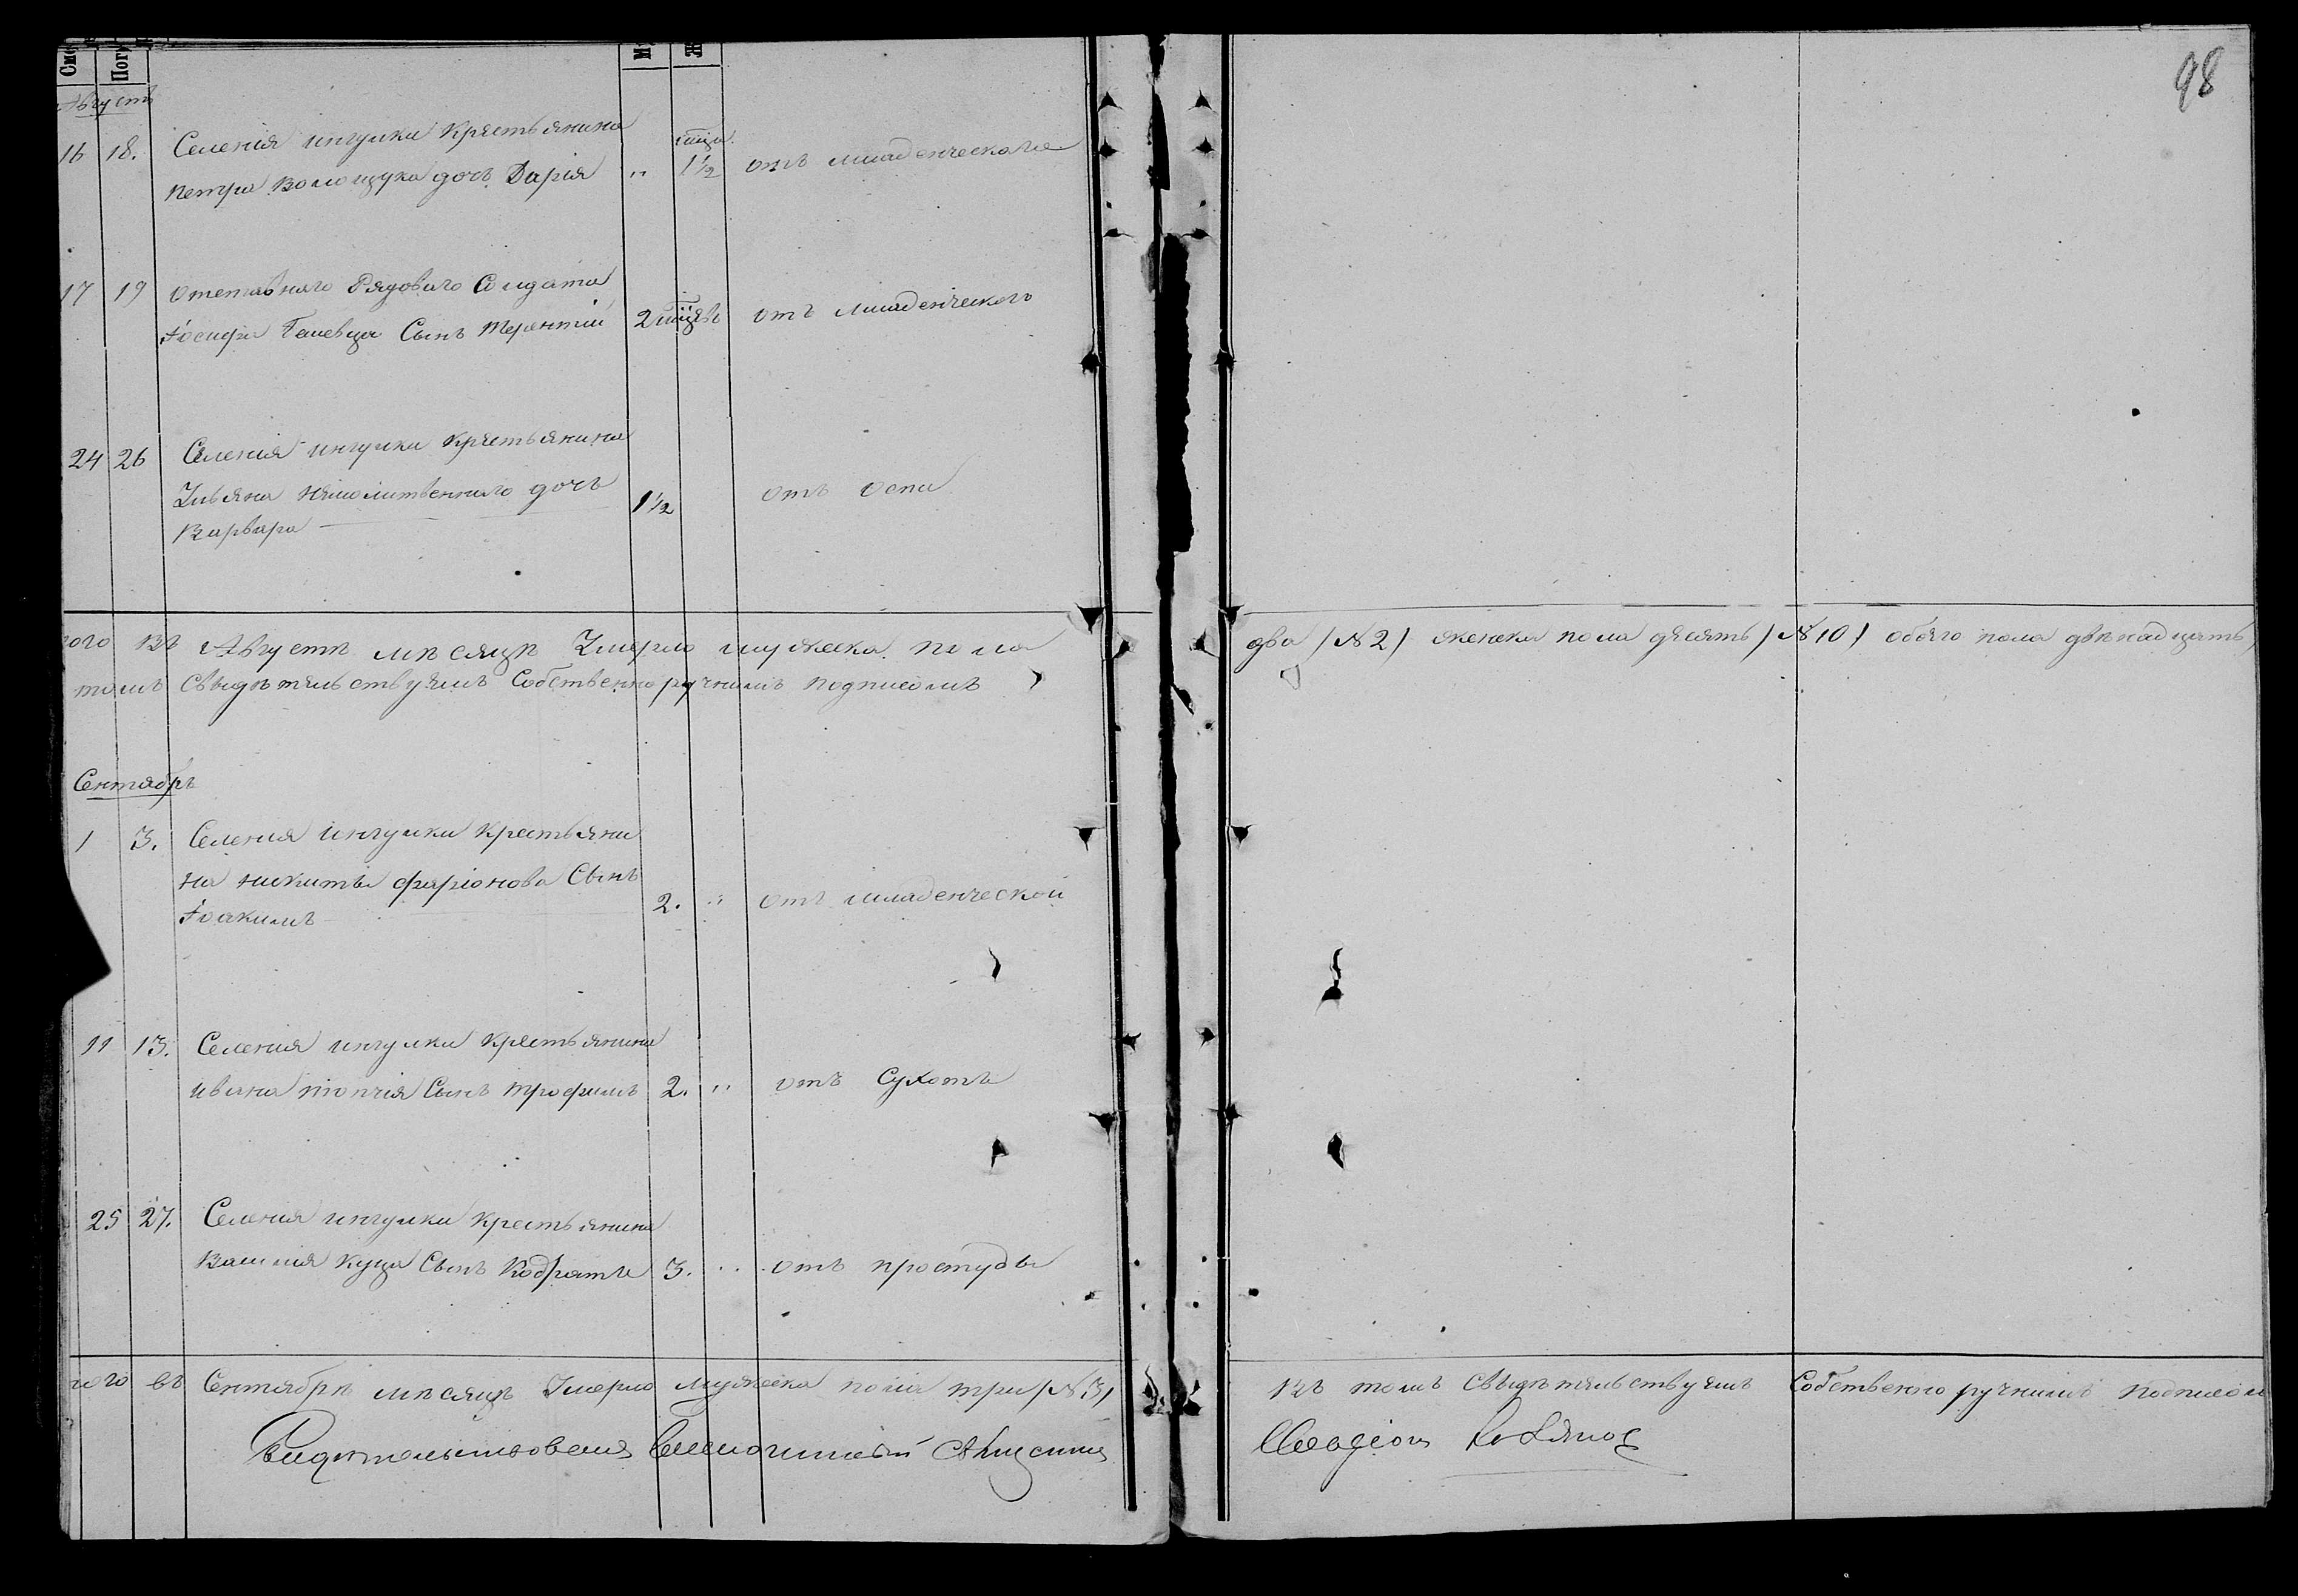 98
Августъ
16 18. Селенія ингулки Крестьянина
Петра Волощука дочь Дарія " 1½ отъ младенческаго
17 19 отставнаго Рядоваго Солдата
Іосифа Сынъ Терентій 2 отъ младенческого
24 26 Селенія ингулки Крестьянина
дочь
Варвара 1½ отъ оспи
того въ Августѣ мѣсяцѣ Умерло мужеска пола два /№ 2/ женска пола десять /№ 10/ обоего пола двѣнадцать,
томъ Свыдѣтельствуемъ Собственноручнимъ подписомъ
Сентябръ
1 3. Селения ингулки Крестьяни
на никиты фаріонова Сынъ
Іоакимъ 2. " отъ младенческой
11 13. Селения ингулки Крестьянина
ивана Сынъ трофимъ 2. " отъ Сухоты
25 27. Селения ингулки Крестьянина
Василія Куца Сынъ Кодратъ 3. " отъ простуды
того въ Сентябрѣ мѣсяцѣ Умерло мужеска пола три /№ 3/ въ томъ Свыдѣтельствуемъ Собственноручнимъ подписом